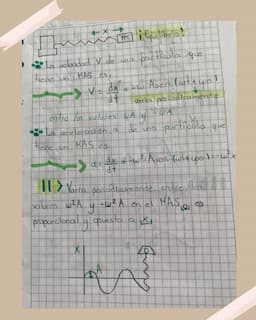 x
m ¡Equilibrio!
La velocidad V de una partícula que
tiene un MAS es.
V = dx/dt = -ωA sen (ωt + φo)
Varia periodicamente
entre los valores ωA y -ωA
La aceleración a de una partícula que
tiene un MAS es.
= -ω² A cos (ωt + φo) = -ω² x
Varia periodicamente entre los
valores ω²A y -ω²A en el MAS, es
proporcional y opuesta a x
X
A